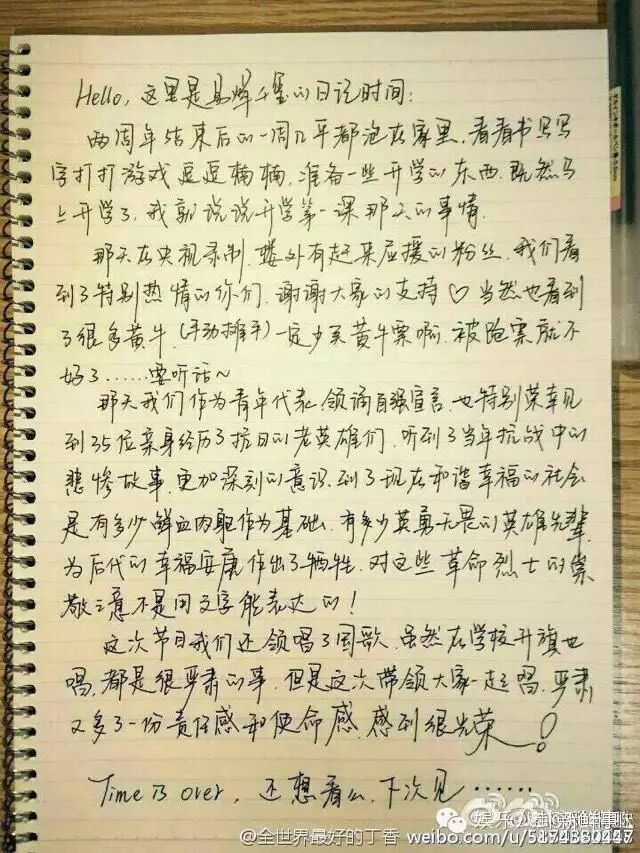 Hello, 这里是易烊千玺的日记时间:
两周年结束后的一周几乎都泡在家里, 看看书写写
字打打游戏逗逗楠楠, 准备一些开学的东西. 既然马
上开学了, 我就说说开学第一课那天的事情.
那天在央视录制, 楼外有赶来应援的粉丝, 我们看
到了特别热情的你们, 谢谢大家的支持♡ 当然也看到
了很多黄牛, (手动摊手) 一定少买黄牛票啊, 被跑票就不
好了……要听话~
那天我们作为青年代表, 领诵自强宣言, 也特别荣幸见
到35位亲身经历了抗日的老英雄们, 听到了当年抗战中的
悲惨故事, 更加深刻的意识到了现在和谐幸福的社会
是有多少鲜血肉躯作为基础, 有多少英勇无畏的英雄先辈,
为后代的幸福安康作出了牺牲. 对这些革命烈士的崇
敬之意不是用文字能表达的!
这次节目我们还领唱了国歌, 虽然在学校升旗也
唱, 都是很严肃的事, 但是这次带领大家一起唱, 严肃
又多了一份责任感和使命感, 感到很光荣!
Time is over, 还想看么, 下次见……
@全世界最好的丁香 weibo.com/u/5174380447